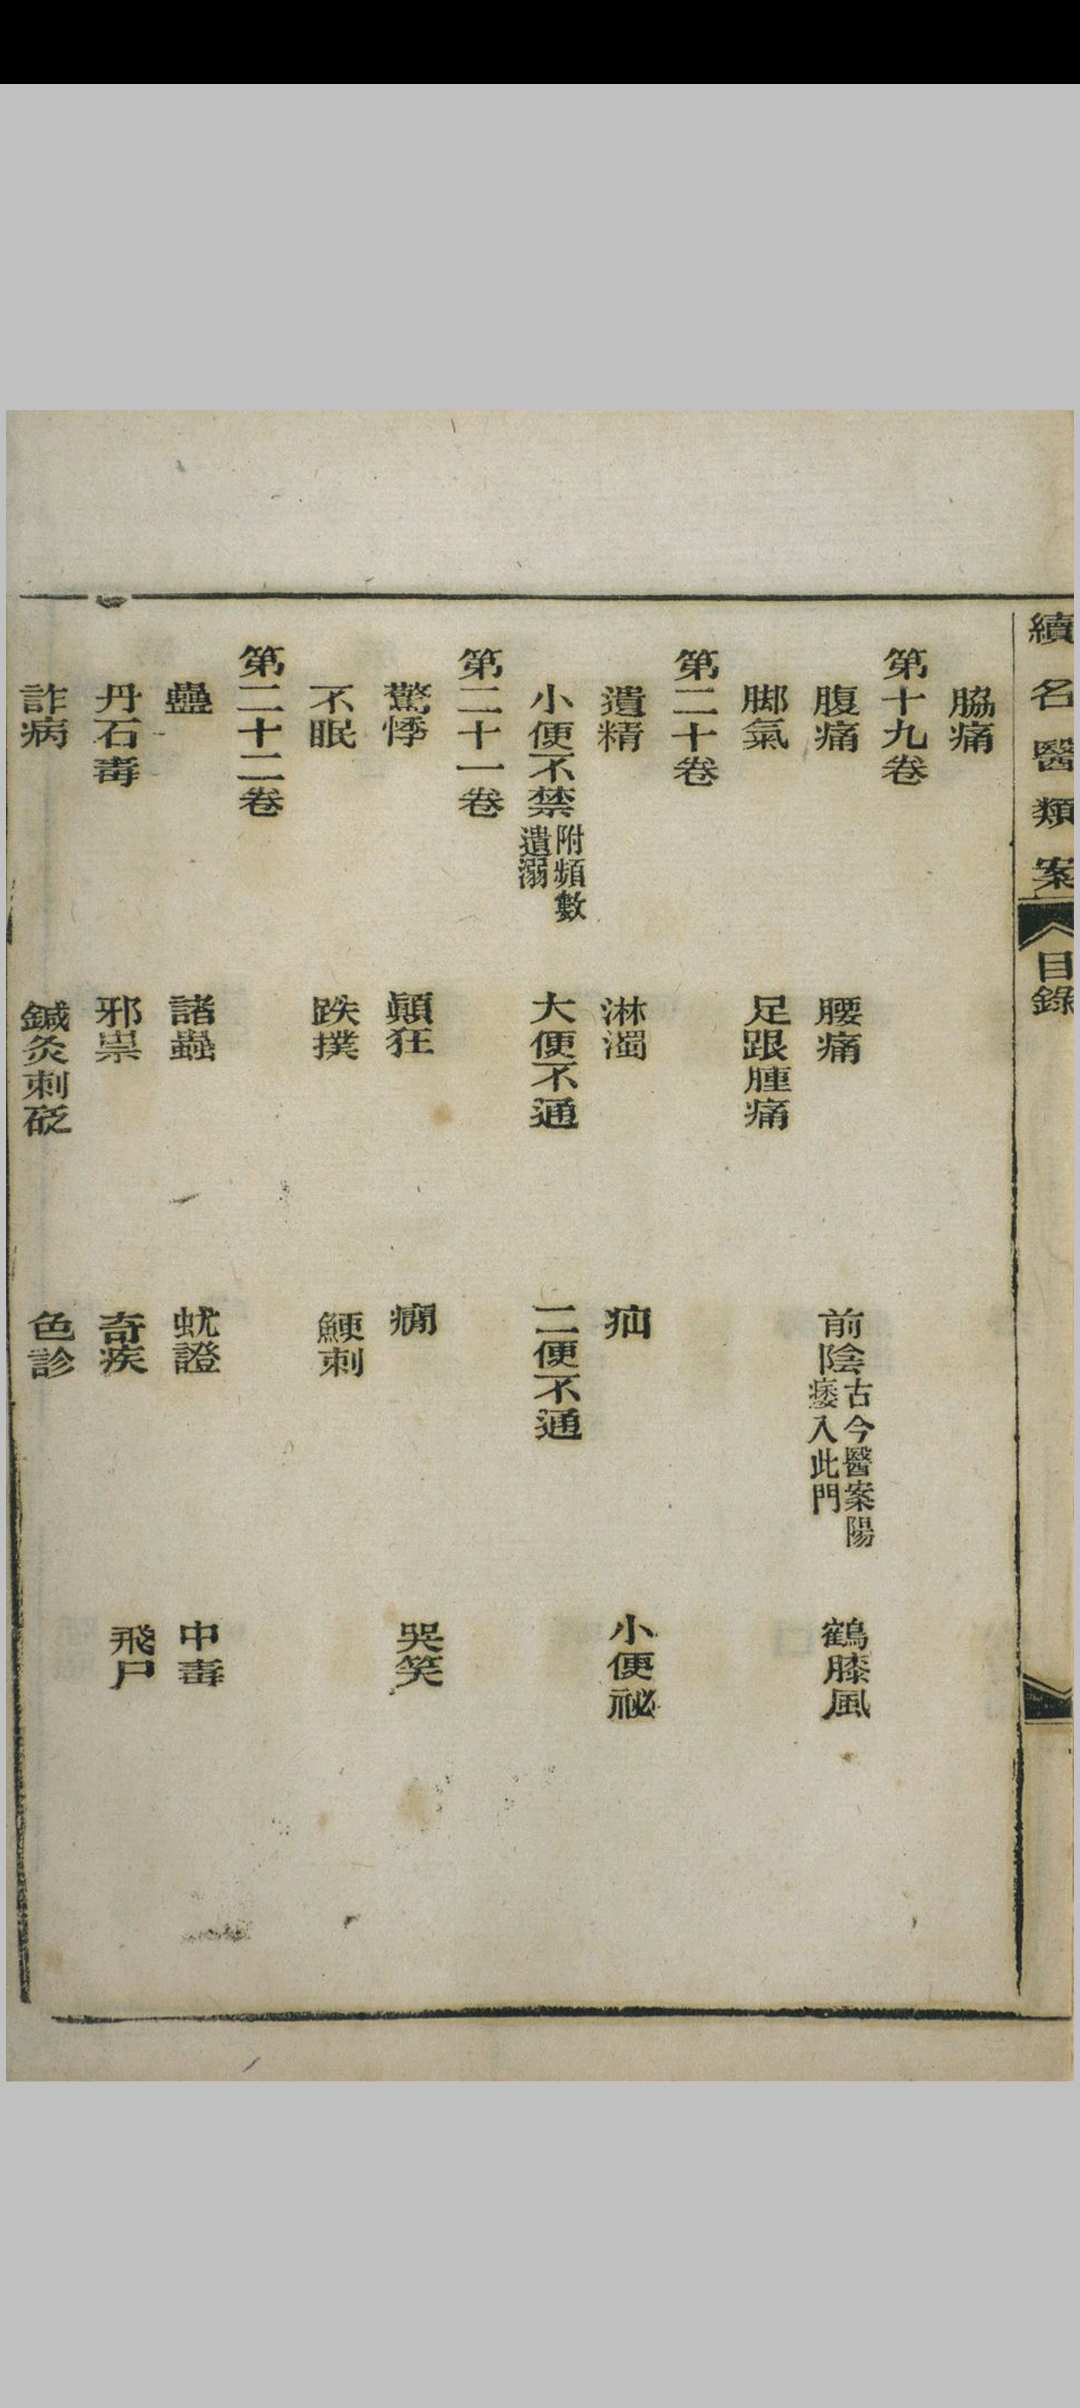 續名醫類案 目錄
脇痛
第十九卷
腹痛 腰痛 前陰 古今醫案陽痿入此門 鶴膝風
脚氣 足跟腫痛
第二十卷
遺精 淋濁 疝 小便祕
小便不禁 附頻數遺溺 大便不通 二便不通
第二十一卷
驚悸 顛狂 癇 哭笑
不眠 跌撲 鯁刺
第二十二卷
蠱 諸蟲 蚘證 中毒
丹石毒 邪祟 奇疾 飛尸
詐病 鍼灸刺砭 色診